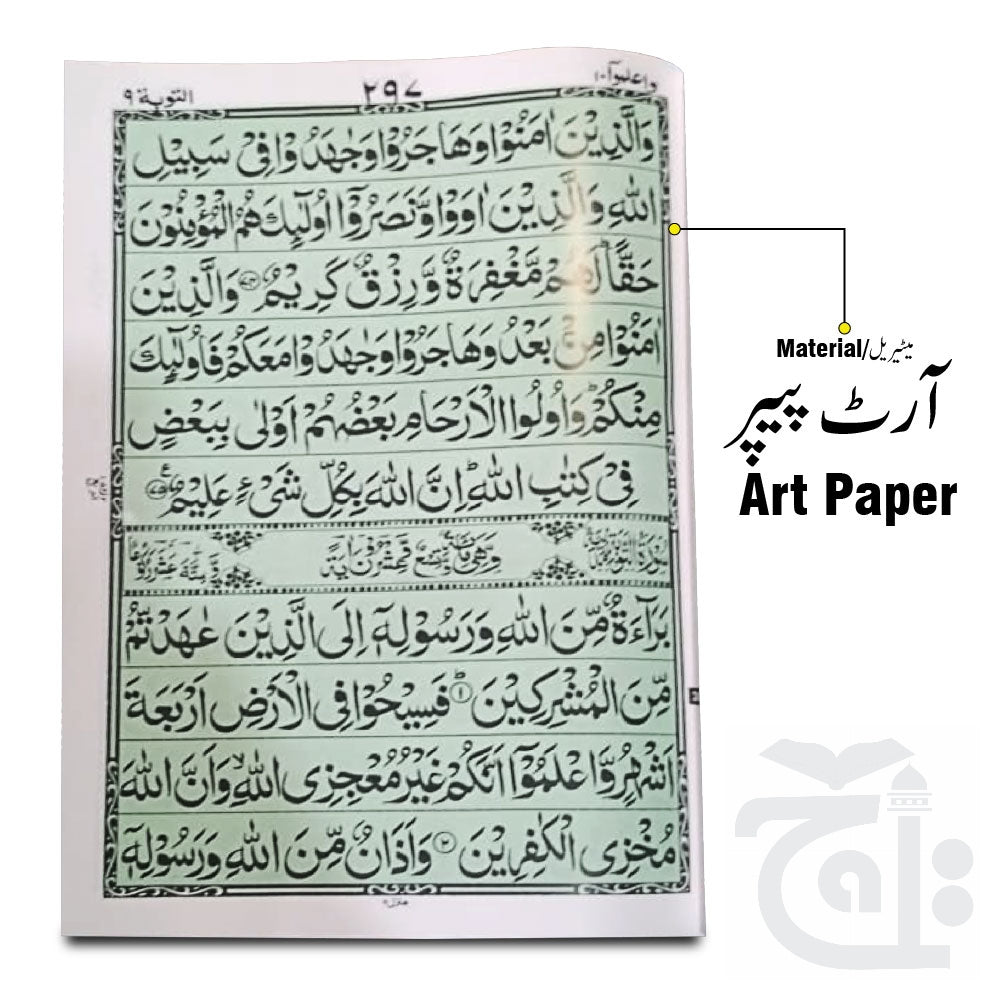 واعلموآ ۱۰ ۲۹۷ التوبة ۹
وَالَّذِیْنَ اٰمَنُوْا وَهَاجَرُوْا وَجٰهَدُوْا فِیْ سَبِیْلِ
اللّٰهِ وَالَّذِیْنَ اٰوَوْا وَّنَصَرُوْۤا اُولٰٓىِٕكَ هُمُ الْمُؤْمِنُوْنَ
حَقًّا ؕ لَهُمْ مَّغْفِرَةٌ وَّرِزْقٌ كَرِیْمٌ ﴿۷۴﴾ وَالَّذِیْنَ
اٰمَنُوْا مِنْۢ بَعْدُ وَهَاجَرُوْا وَجٰهَدُوْا مَعَكُمْ فَاُولٰٓىِٕكَ
مِنْكُمْ ؕ وَاُولُوا الْاَرْحَامِ بَعْضُهُمْ اَوْلٰی بِبَعْضٍ
فِیْ كِتٰبِ اللّٰهِ ؕ اِنَّ اللّٰهَ بِكُلِّ شَیْءٍ عَلِیْمٌ ﴿۷۵﴾ ع
بَرَآءَةٌ مِّنَ اللّٰهِ وَرَسُوْلِهٖۤ اِلَی الَّذِیْنَ عٰهَدْتُّمْ
مِّنَ الْمُشْرِكِیْنَ ؕ ﴿۱﴾ فَسِیْحُوْا فِی الْاَرْضِ اَرْبَعَةَ
اَشْهُرٍ وَّاعْلَمُوْۤا اَنَّكُمْ غَیْرُ مُعْجِزِی اللّٰهِ ۙ وَاَنَّ اللّٰهَ
مُخْزِی الْكٰفِرِیْنَ ﴿۲﴾ وَاَذَانٌ مِّنَ اللّٰهِ وَرَسُوْلِهٖۤ
منزل ۲
Material/میٹیریل
آرٹ پیپر
Art Paper